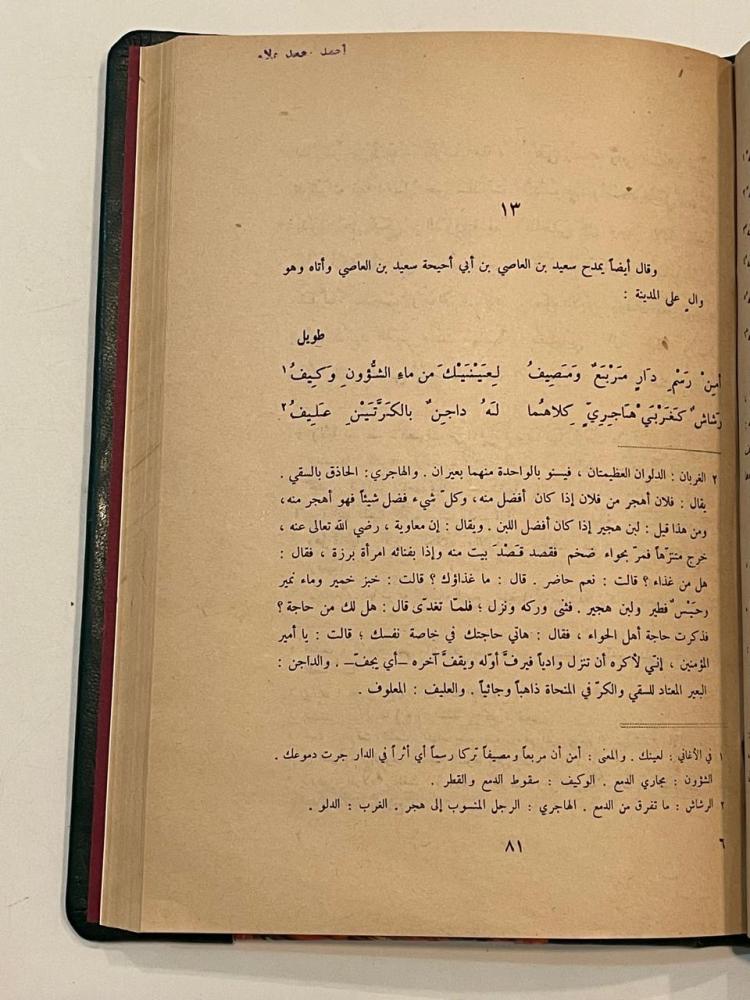 أحمد
١٣
وقال أيضاً يمدح سعيد بن العاصي بن أبي أحيحة سعيد بن العاصي وأتاه وهو
والٍ على المدينة :
طويل
أمِنْ رَسْمِ دَارٍ مَرْبَعٌ وَمَصِيفُ لِعَيْنَيْكَ من ماءِ الشُّؤونِ وَكِيفُ١
رَشاشٌ كَغَرْبَيْ هَاجِرِيٍّ كِلاهُما لَهُ داجِنٌ بالكَرَّتَيْنِ عَلِيفُ٢
٢ الغربان : الدلوان العظيمتان ، فيسنو بالواحدة منهما بعيران . والهاجري: الحاذق بالسقي .
يقال : فلان أهجر من فلان إذا كان أفضل منه، وكلّ شيء فضل شيئاً فهو أهجر منه،
ومن هذا قيل : لبن هجير إذا كان أفضل اللبن . ويقال : إن معاوية ، رضي الله تعالى عنه ،
خرج متنزّهاً فمرّ بحواء ضخم فقصد قَصْدَ بيت منه وإذا بفنائه امرأة برزة ، فقال :
هل من غذاء ؟ قالت : نعم حاضر . قال : ما غذاؤك ؟ قالت : خبز خمير وماء نمير
وحَيْسٌ فطير ولبن هجير . فثنى وركه ونزل ؛ فلمّا تغدّى قال : هل لك من حاجة ؟
فذكرت حاجة أهل الحواء ، فقال : هاتي حاجتك في خاصة نفسك ؛ قالت : يا أمير
المؤمنين ، إنّي لأكره أن تنزل وادياً فيرفَّ أوّله ويقفَّ آخره –أي يجفّ– . والداجن :
البعير المعتاد للسقي والكرّ في المنحاة ذاهباً وجائياً . والعليف : المعلوف .
١ في الأغاني : لعينك . والمعنى : أمن أن مربعاً ومصيفاً تركا رسماً أي أثراً في الدار جرت دموعك .
الشؤون : مجاري الدمع . الوكيف : سقوط الدمع والقطر .
٢ الرشاش : ما تفرق من الدمع . الهاجري : الرجل المنسوب إلى هجر . الغرب : الدلو .
٨١ ٦